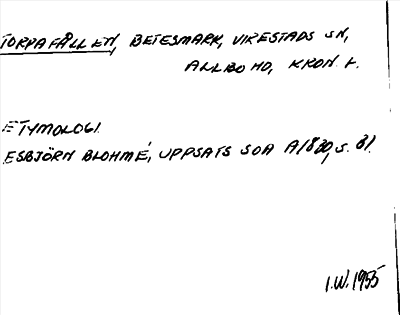 TORPAFÅLLEN, BETESMARK, VIRESTADS SN,
ALLBO HD, KRON. L.
ETYMOLOGI.
ESBJÖRN BLOHMÉ, UPPSATS SOA A1820, S. 81.
I.W. 1955